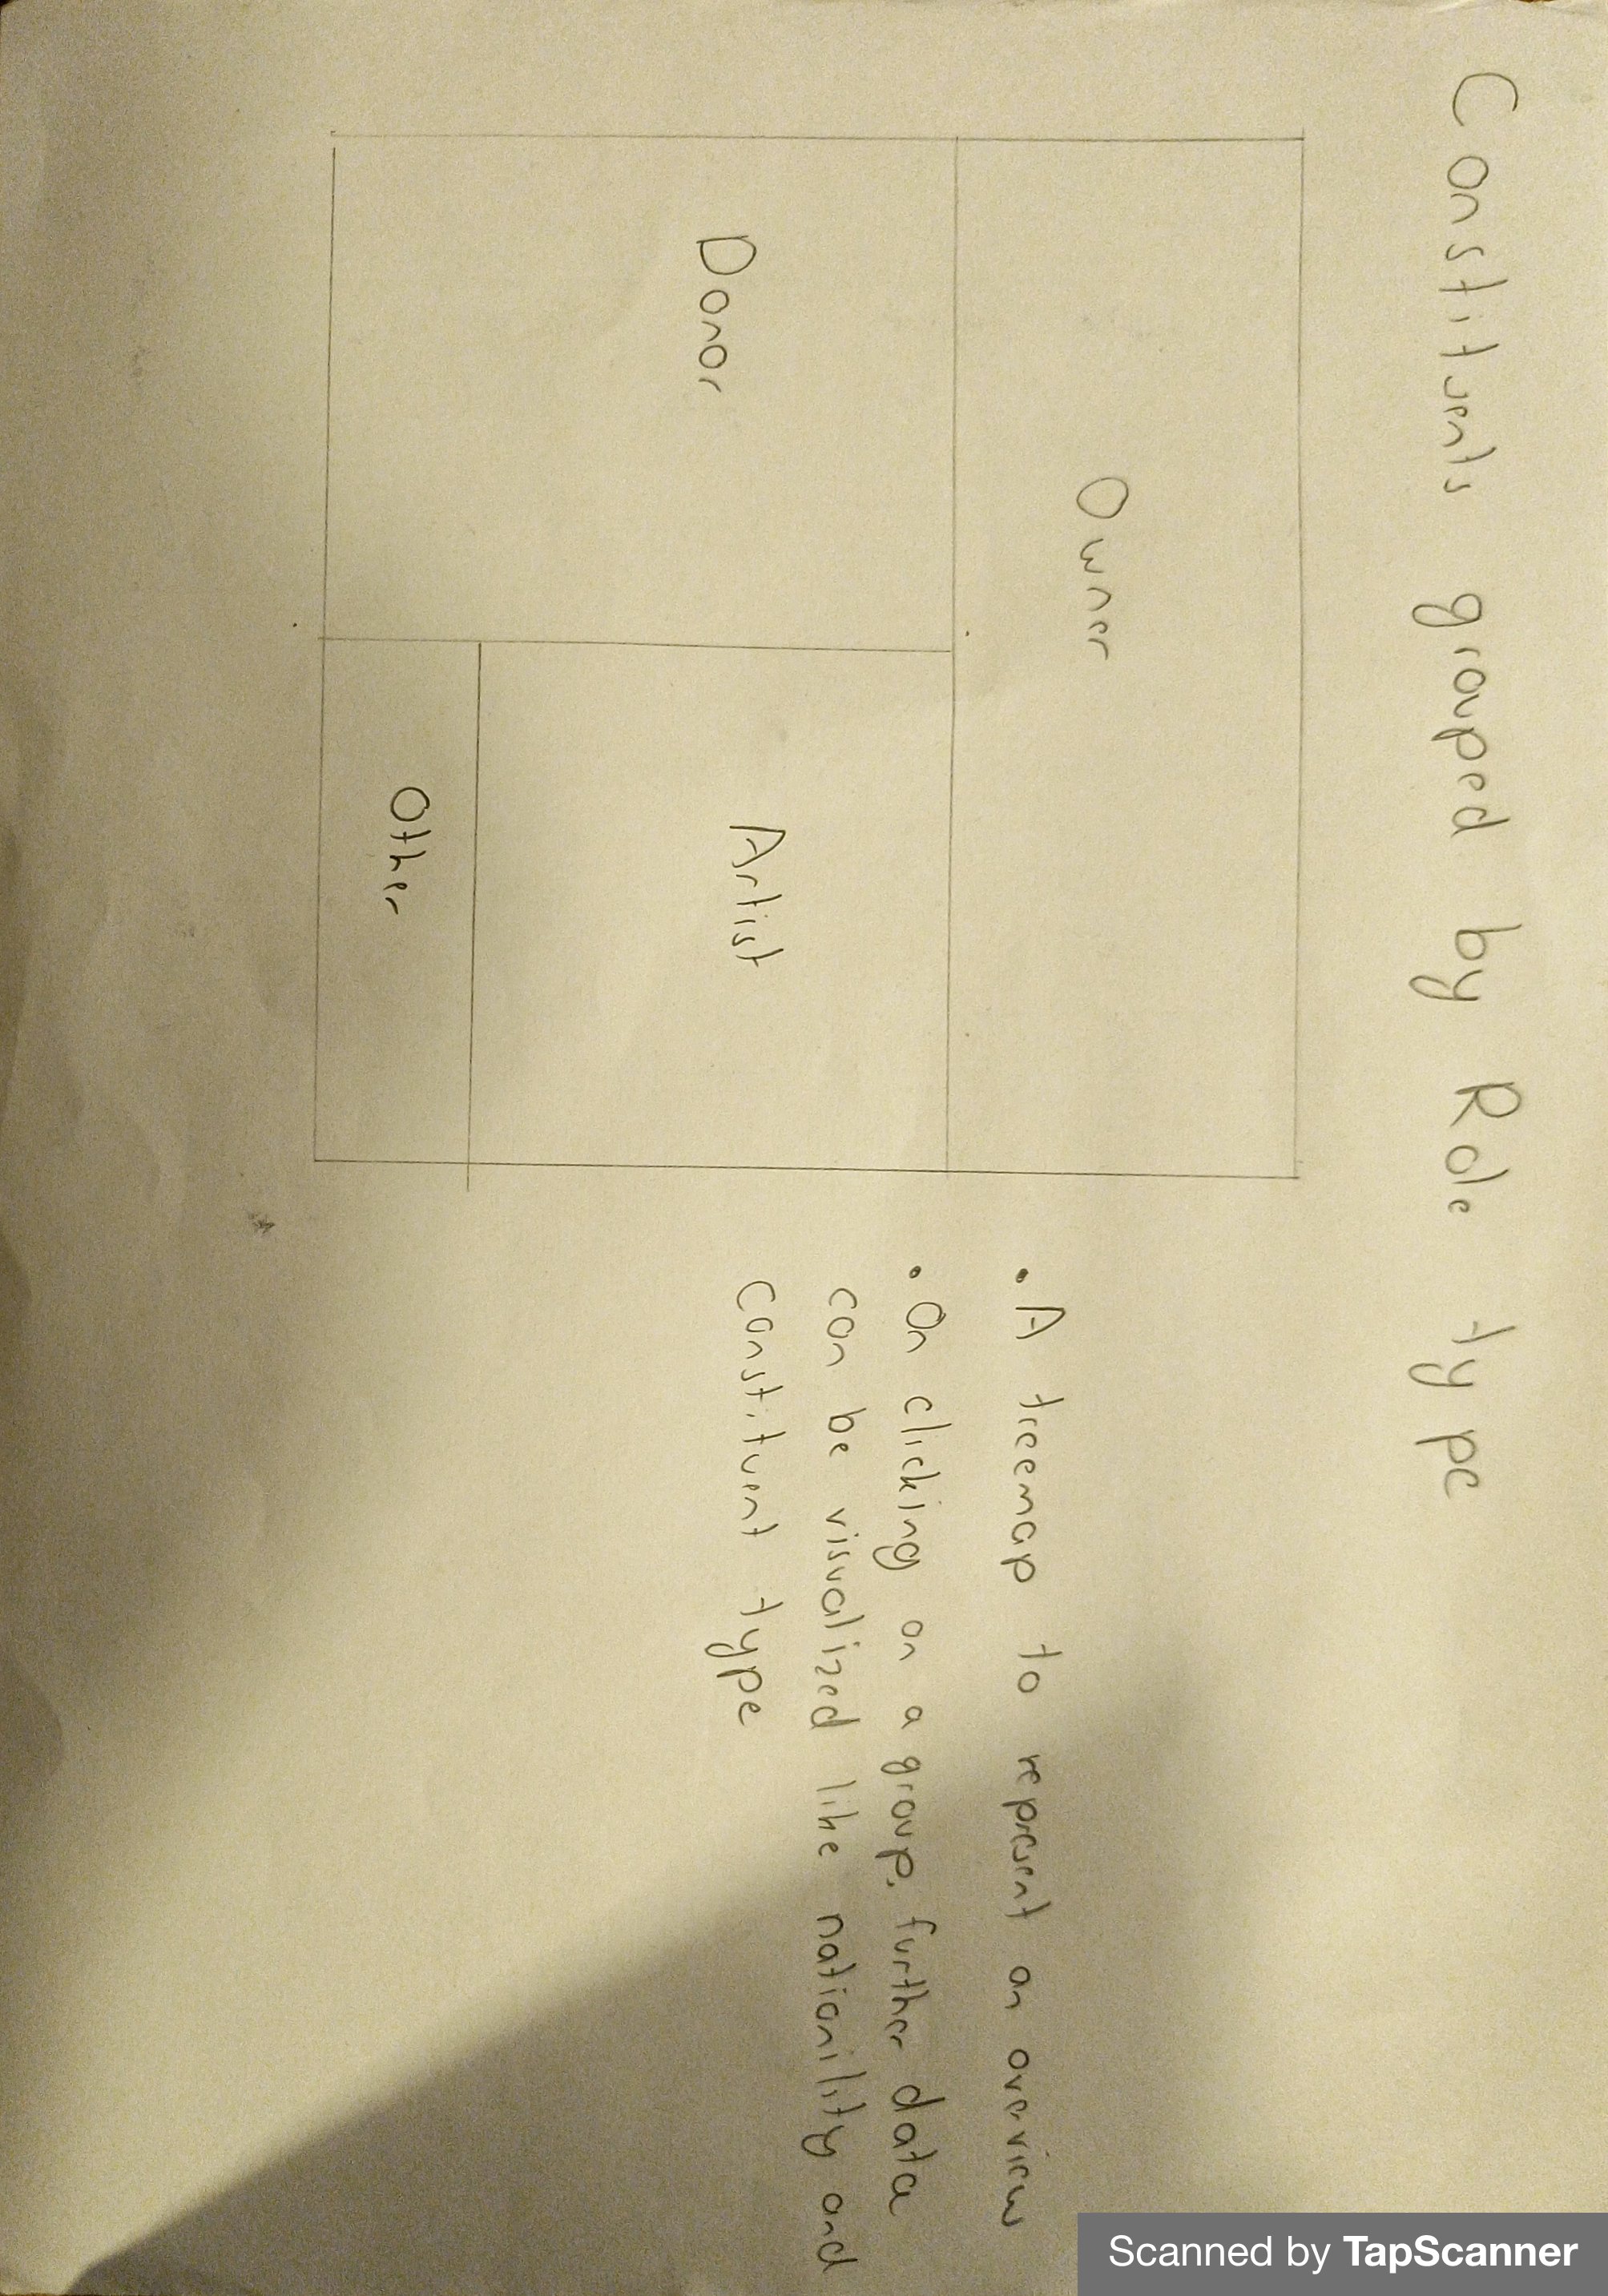 Constituents grouped by Role type
Owner
Donor
Artist
Other
• A treemap to represent an overview
• On clicking on a group, further data
can be visualized like nationility and
constituent type
Scanned by TapScanner